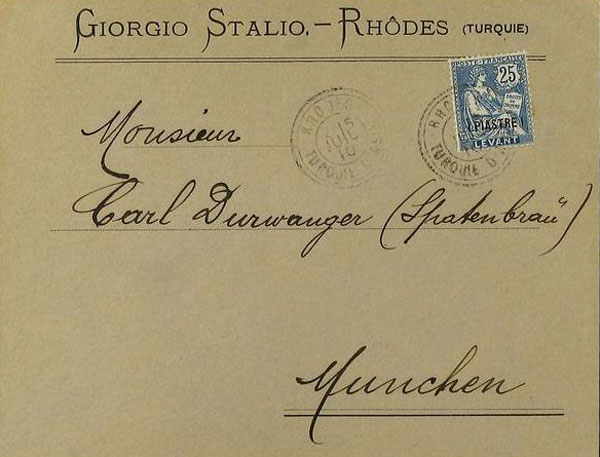 GIORGIO STALIO.—RHÔDES (TURQUIE)
POSTE FRANÇAISE
25
1 PIASTRE 1
LEVANT
RHODES
15
JUIL
10
TURQUIE
RHO
TURQUIE D
Monsieur
Carl Durwanger (Spatenbräu)
Munchen